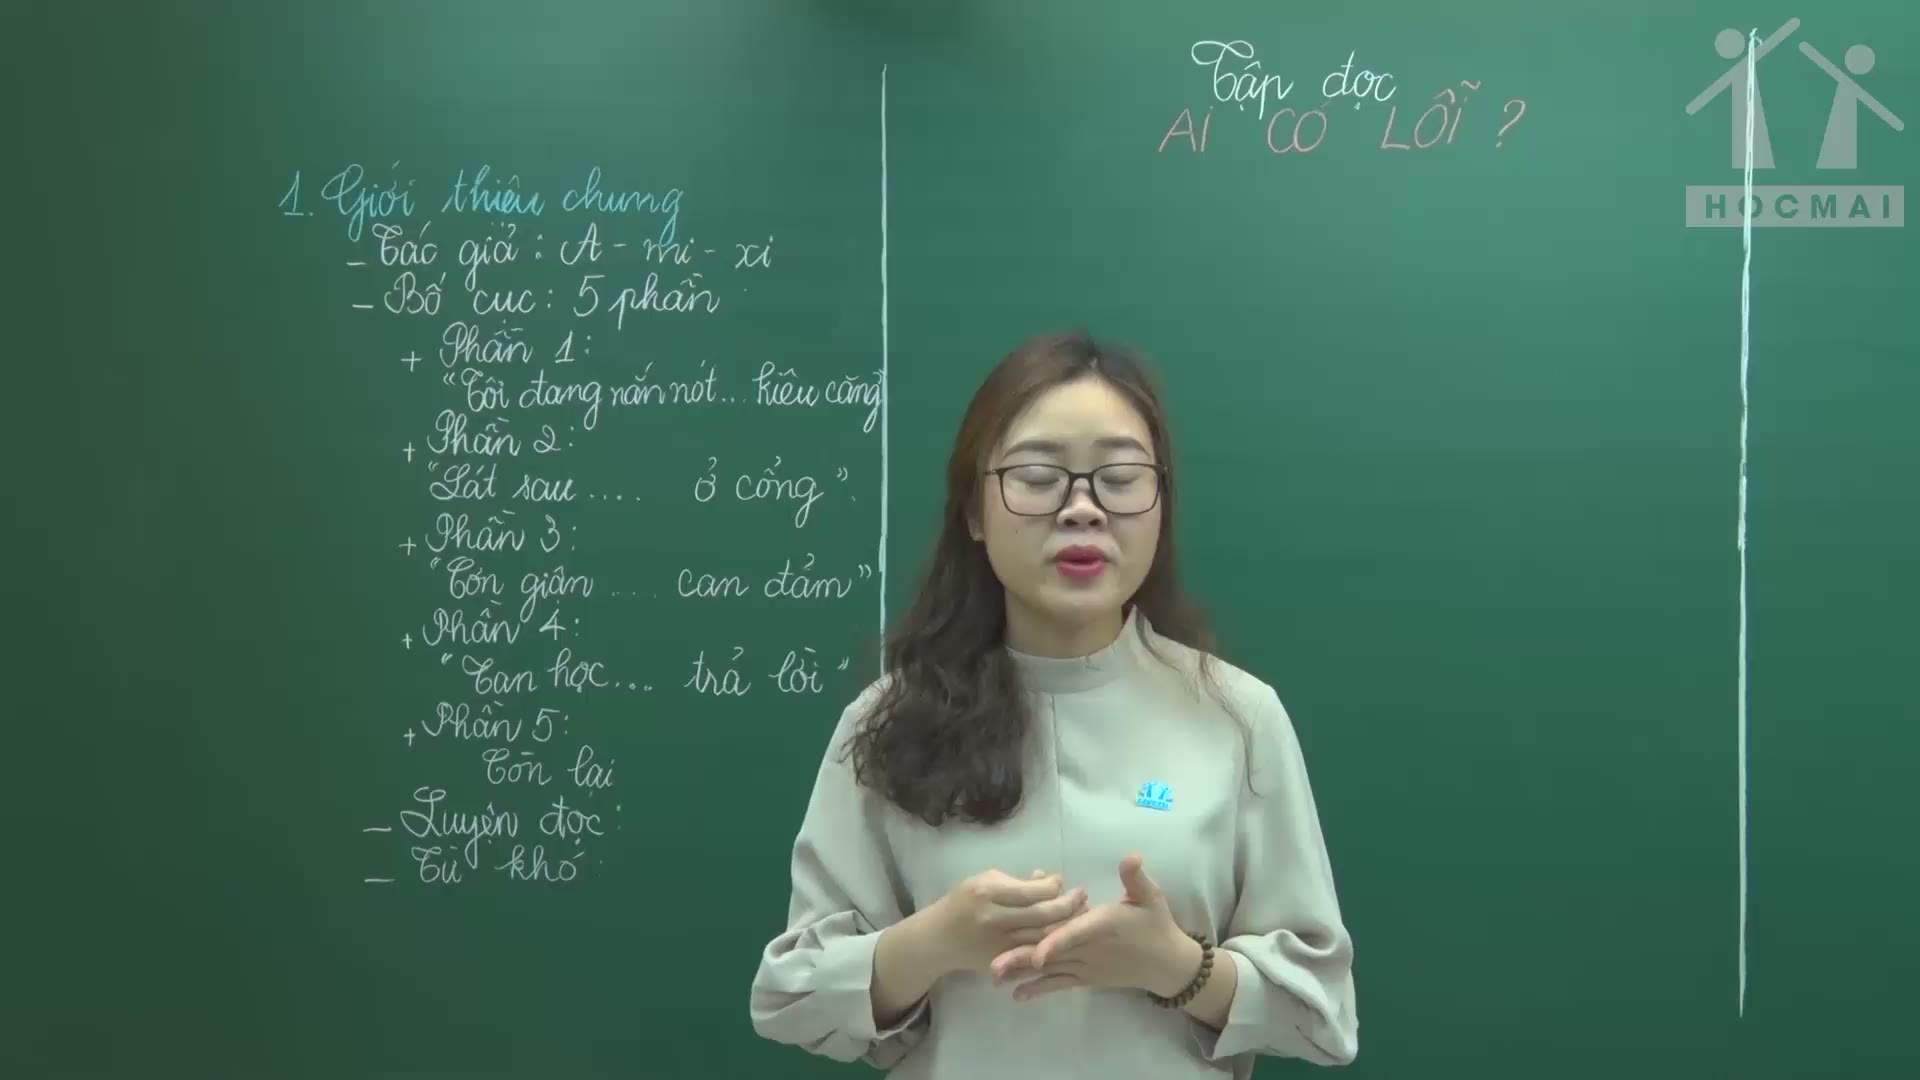 Tập đọc
AI CÓ LỖI ?
HOCMAI
1. Giới thiệu chung
- Tác giả : A - mi - xi
- Bố cục : 5 phần
+ Phần 1 :
"Tôi đang nắn nót... kiêu căng"
+ Phần 2 :
"Lát sau .... ở cổng".
+ Phần 3 :
"Cơn giận .... can đảm"
+ Phần 4 :
"Tan học... trả lời"
+ Phần 5 :
Còn lại
- Luyện đọc :
- Từ khó :